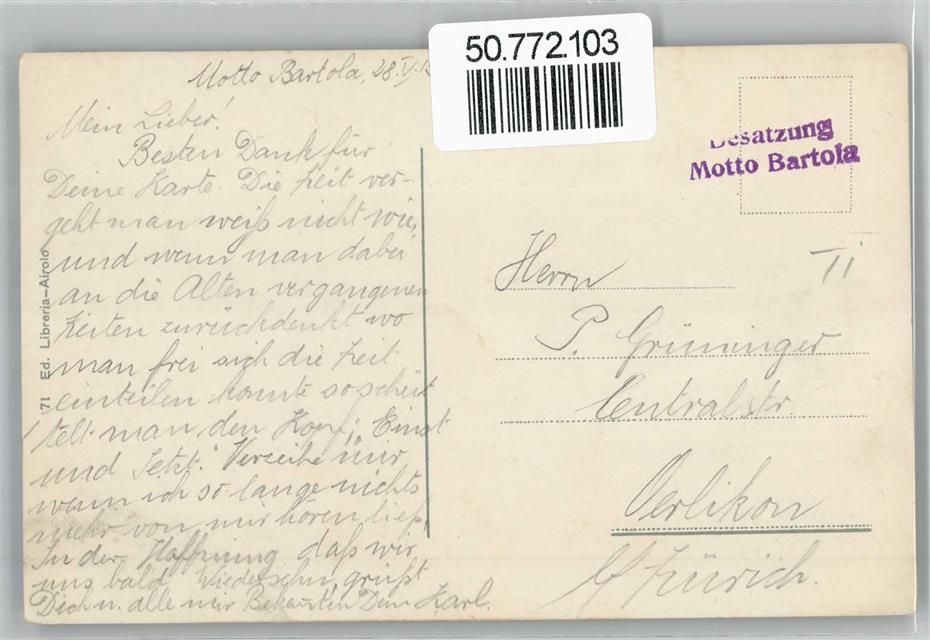 50.772.103
Motto Bartola, 28.V.
Mein Lieber!
Besten Dank für
Deine Karte. Die Zeit ver-
geht man weiß nicht wie,
und wenn man dabei
an die Alten vergangenen
Zeiten zurückdenkt wo
man frei sich die Zeit
einteilen konnte so schüt
telt man den Kopf; "Einst
und Jetzt." Verzeihe mir
wenn ich so lange nichts
mehr von mir hören ließ,
In der Hoffnung daß wir
uns bald Wiedersehn, grüßt
Dich u. alle mir Bekannten Dein Karl.
71 Ed. Libreria-Airolo
Besatzung
Motto Bartola
Ti
Herrn
P. Grüninger
Centralstr.
Oerlikon
b/Zürich.